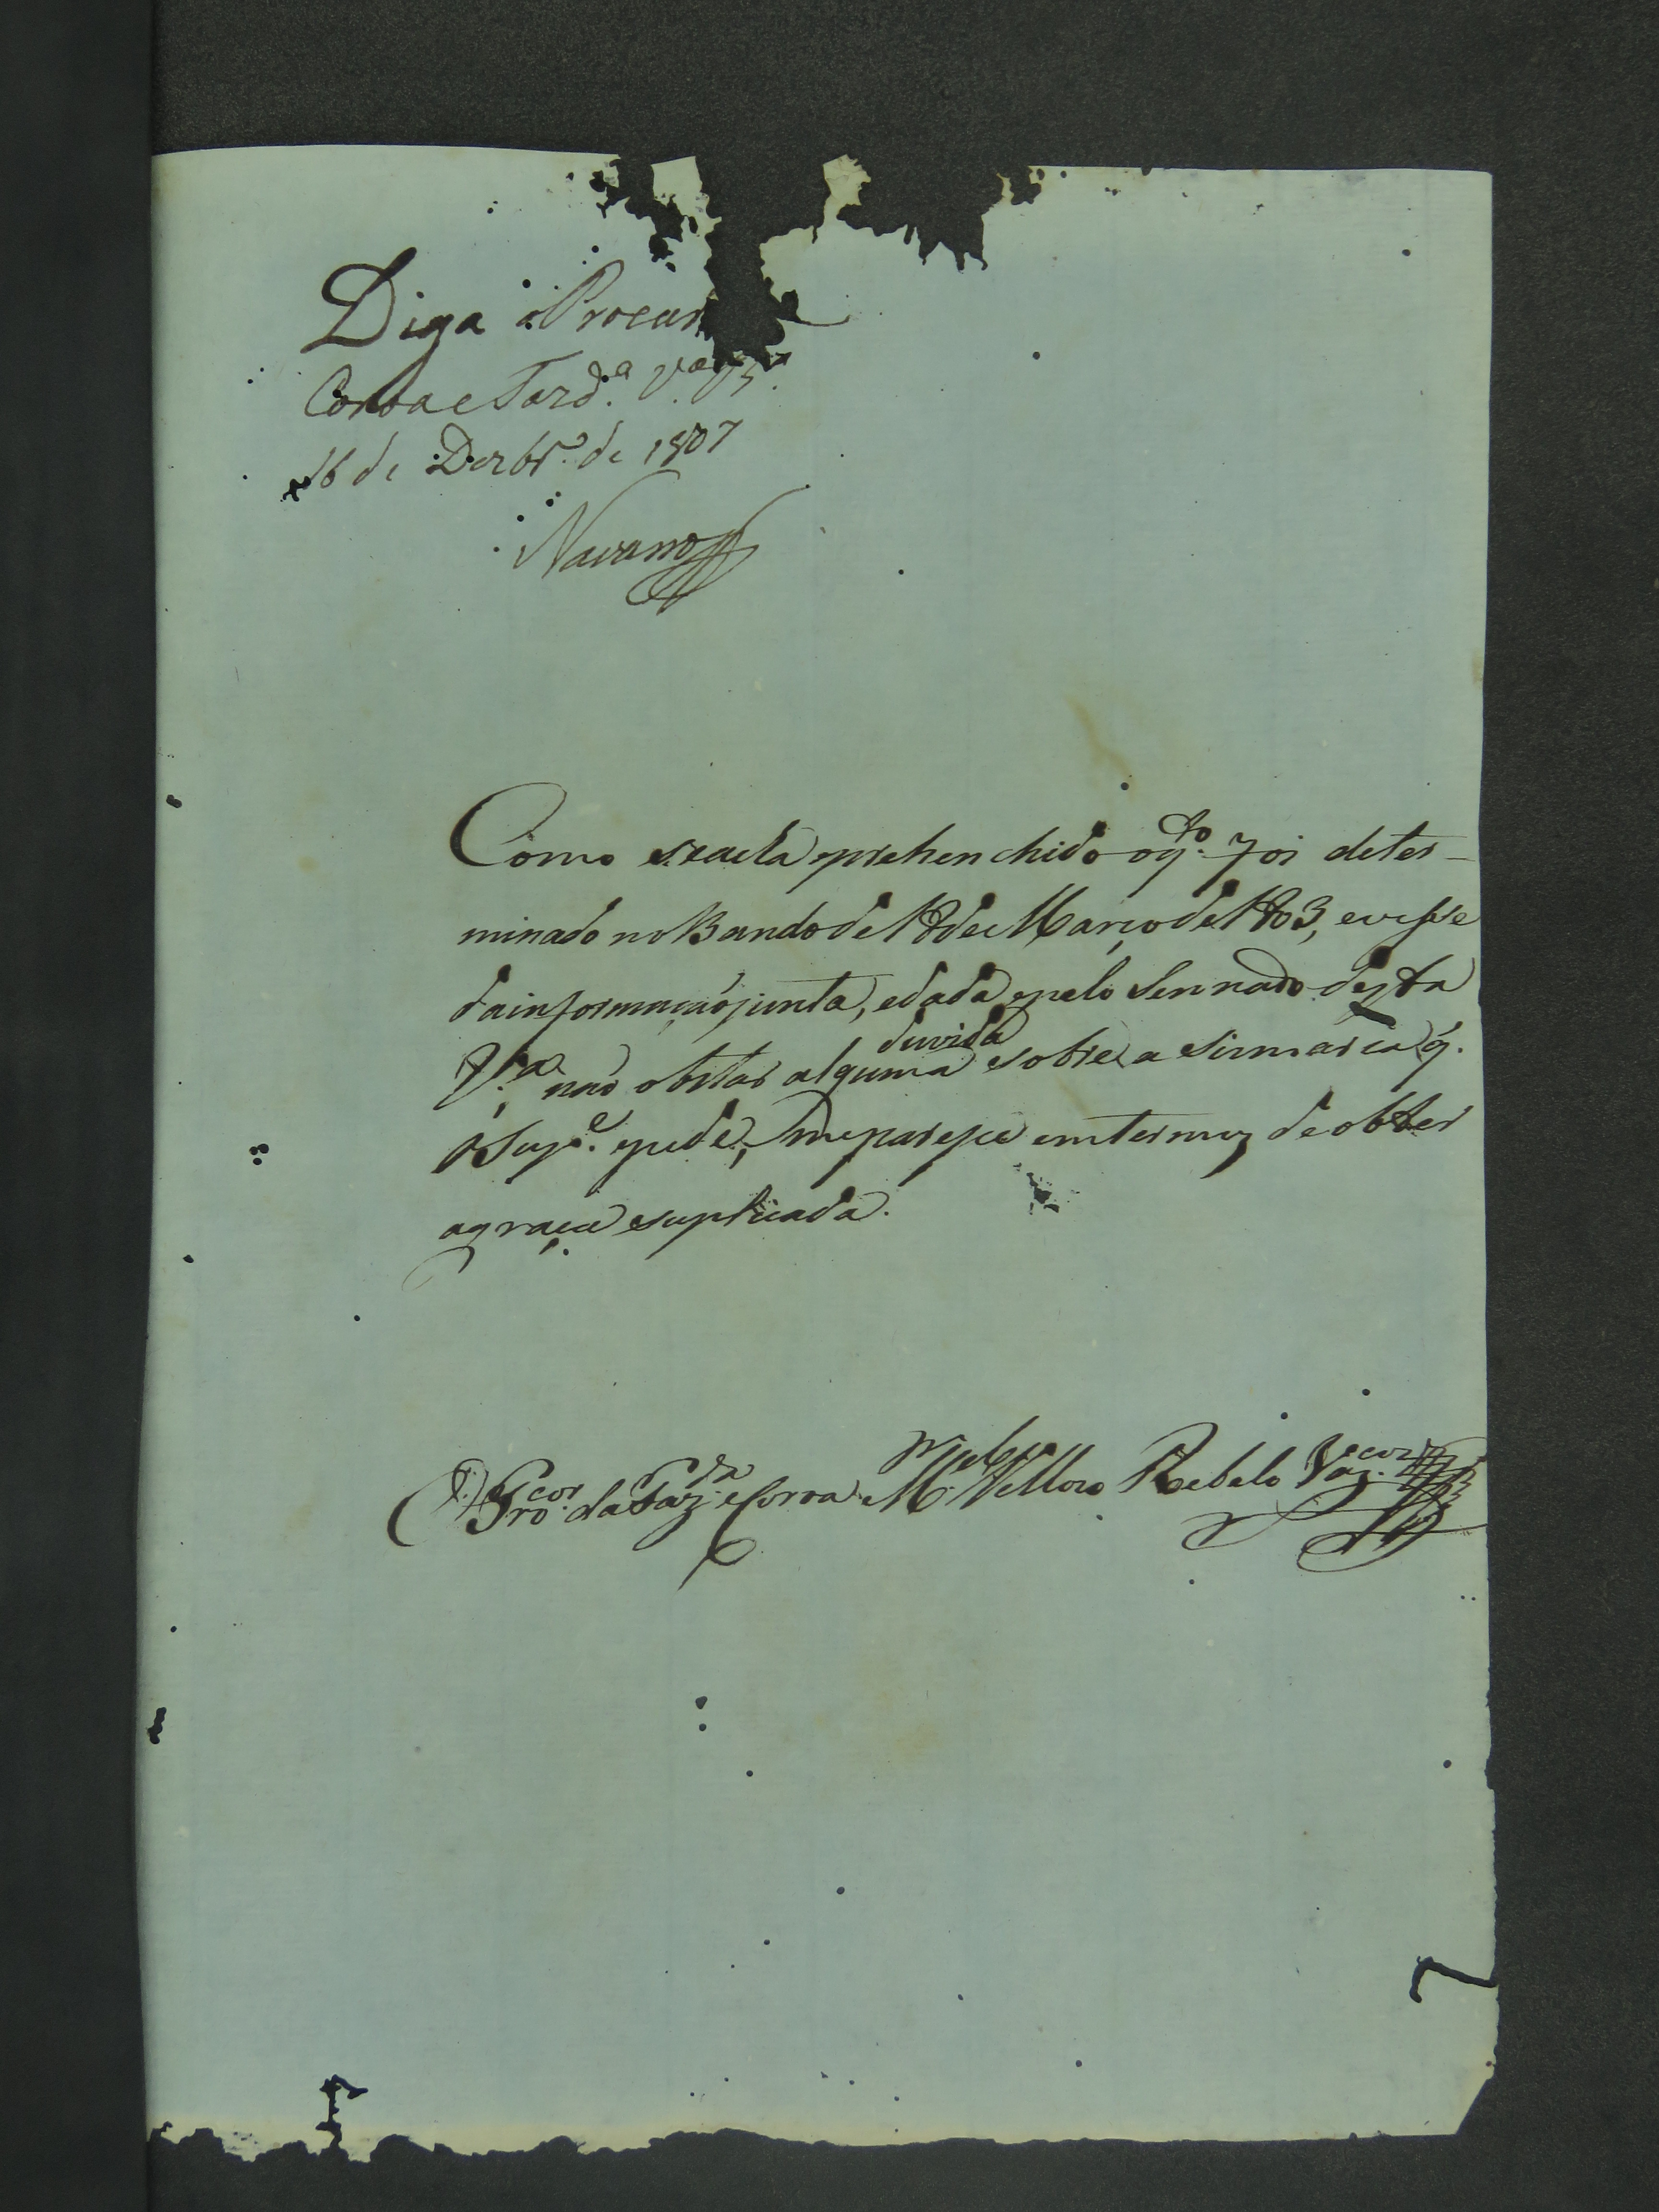 Diga o Procur
Coroa e Fazd.ª V.ª
16 de Dezbr.º de 1807
Navarro
Como se acha prehenchido o q.to foi deter-
minado no Bando de de Março de 1803, e visse
da informação junta, e dada pelo Sennado desta
V.ª não obstar alguma duvida sobre a sismaria q.
o Sup.e pede, me pareçe em termoz de obter
a graça suplicada.
O Procor. da Fazda. e Coroa M.el Velloso Rebelo Vaz.cos